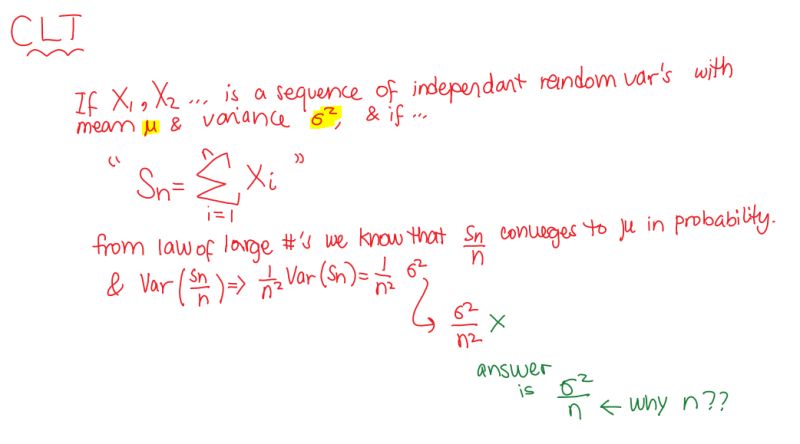 CLT
If X₁, X₂ ... is a sequence of independant random var's with
mean μ & variance σ², & if ...
" Sn = Σ_{i=1}^{n} Xi "
from law of large #'s we know that Sn/n converges to μ in probability.
& Var(Sn/n) ⇒ 1/n² Var(Sn) = 1/n² σ²
σ²/n² X
answer
is σ²/n ← why n??